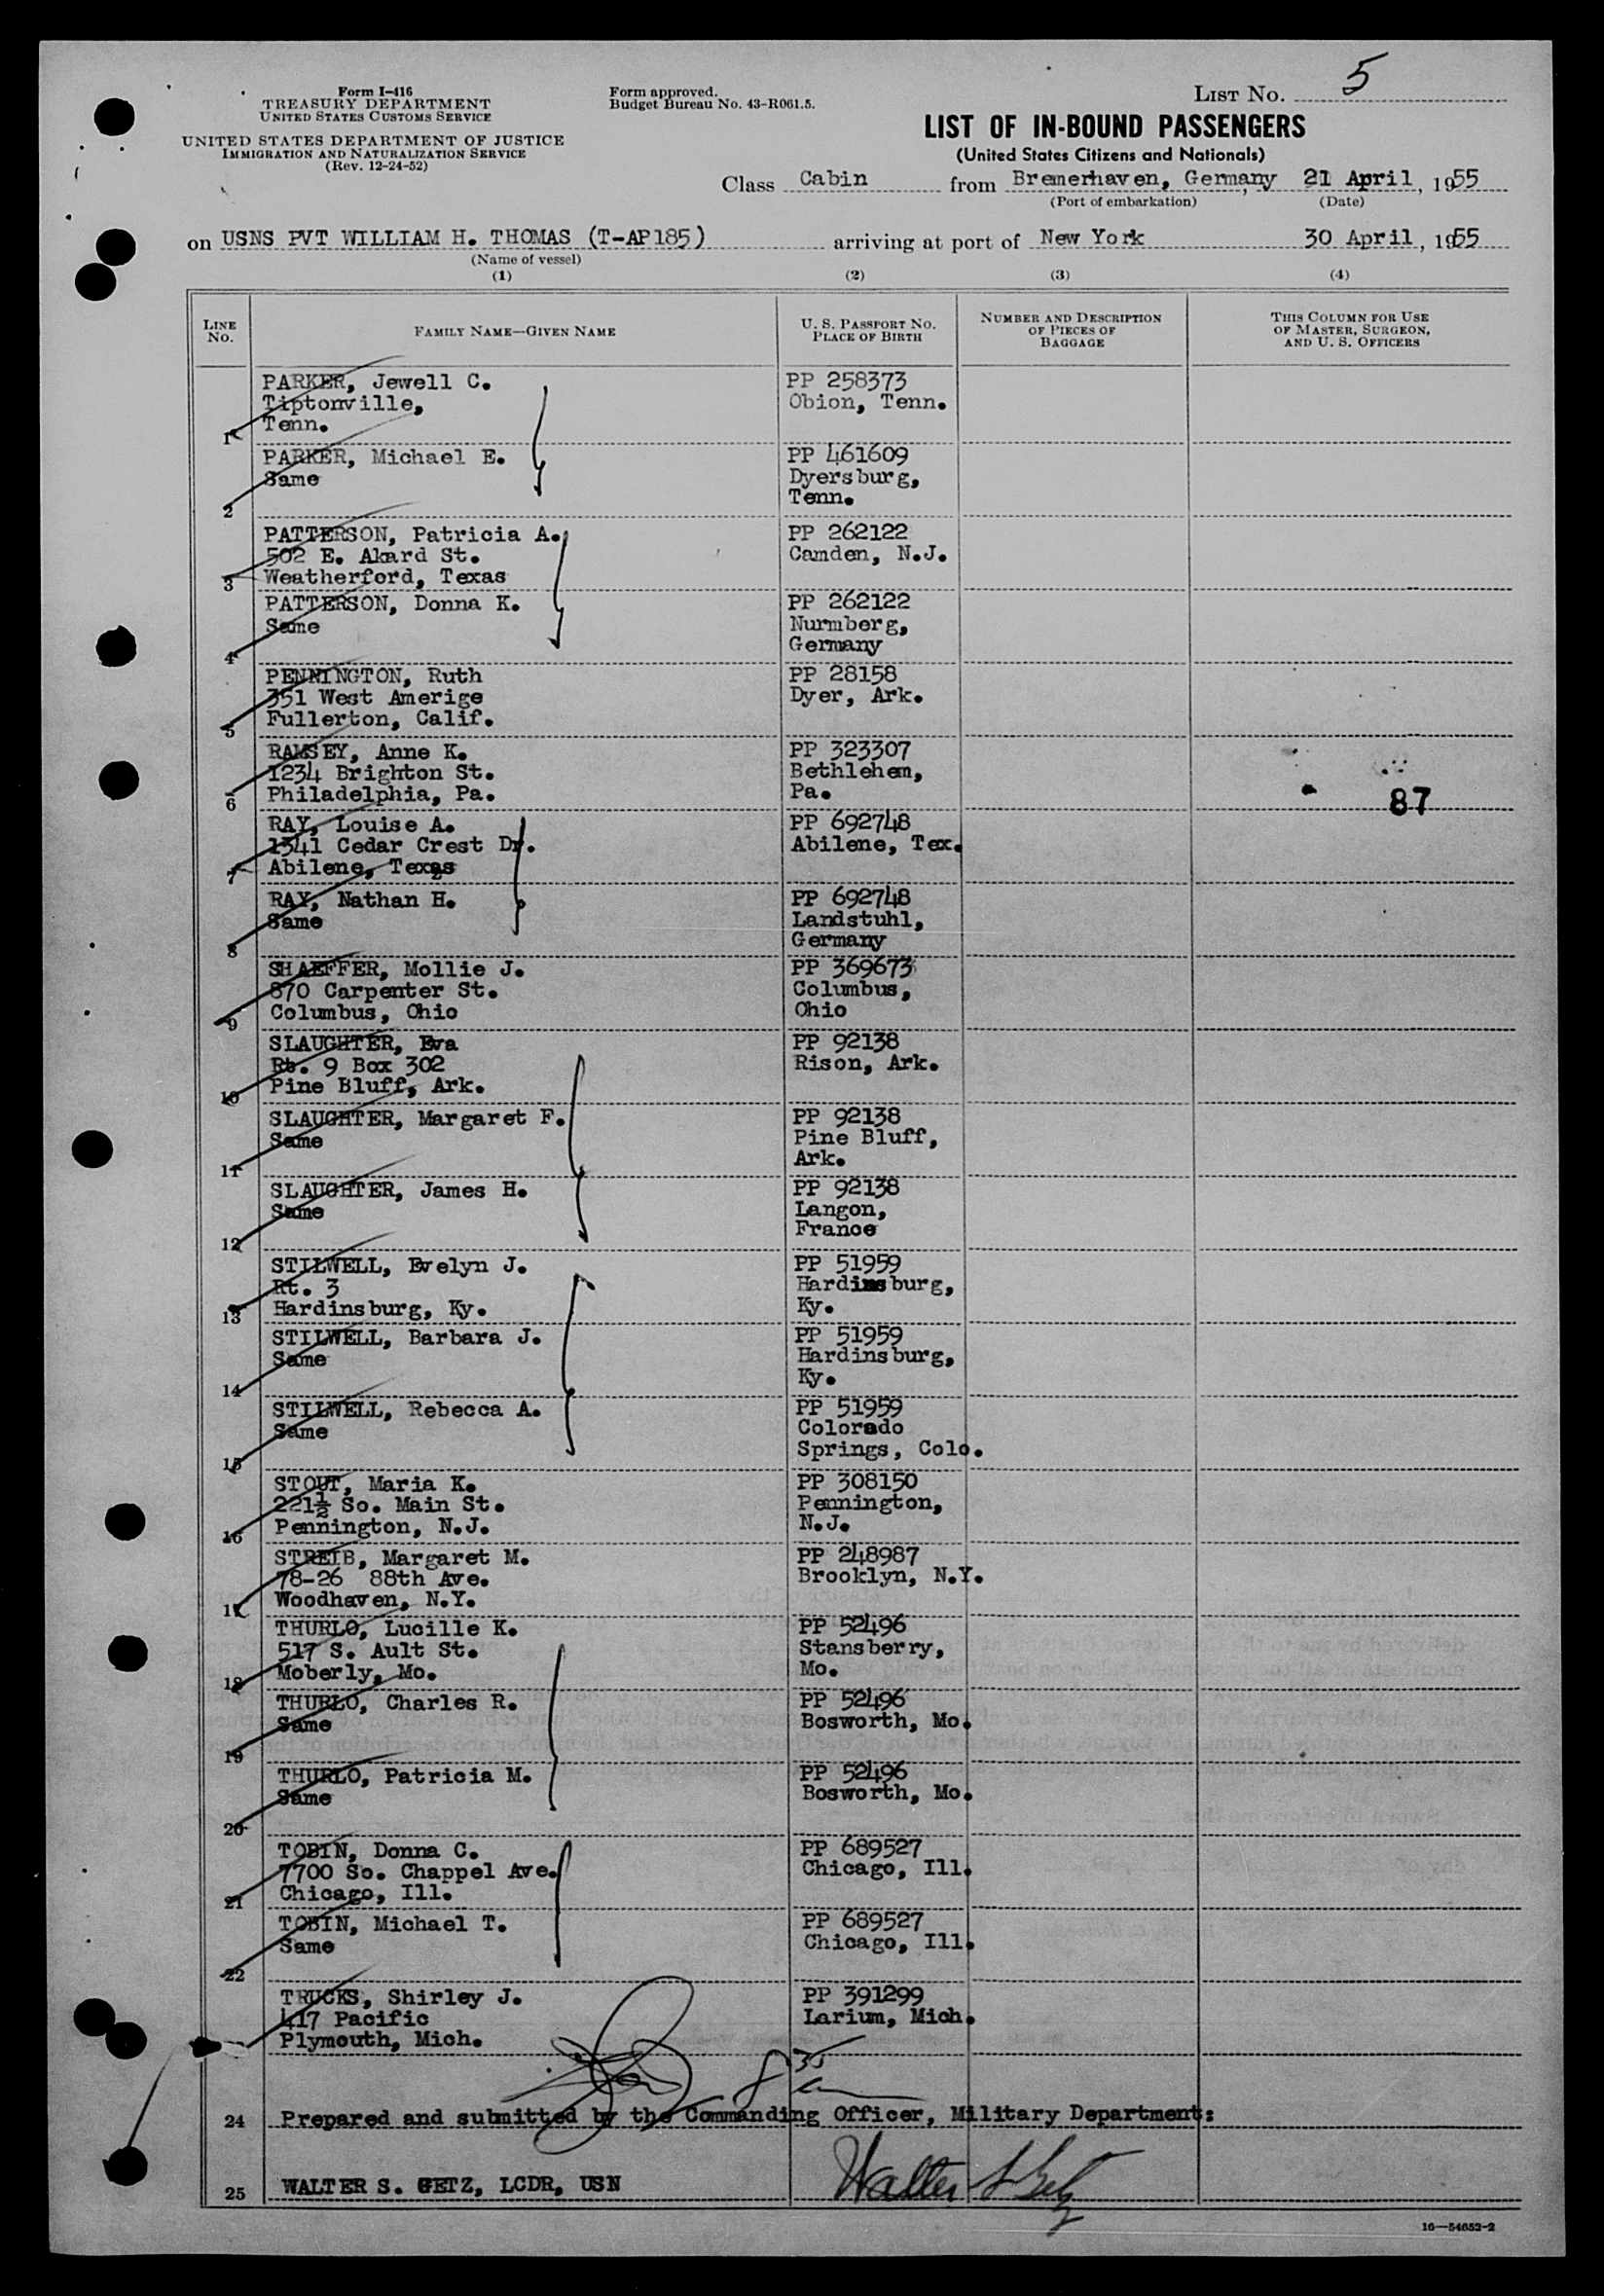 Form I-416
TREASURY DEPARTMENT
UNITED STATES CUSTOMS SERVICE
UNITED STATES DEPARTMENT OF JUSTICE
IMMIGRATION AND NATURALIZATION SERVICE
(Rev. 12-24-52)
Form approved.
Budget Bureau No. 43-R061.5.
LIST No. 5
LIST OF IN-BOUND PASSENGERS
(United States Citizens and Nationals)
Class Cabin from Bremerhaven, Germany, 21 April, 1955
(Port of embarkation) (Date)
on USNS PVT WILLIAM H. THOMAS (T-AP185) arriving at port of New York 30 April, 1955
(Name of vessel)
(1) (2) (3) (4)
LINE No.
FAMILY NAME—GIVEN NAME
U. S. PASSPORT NO.
PLACE OF BIRTH
NUMBER AND DESCRIPTION
OF PIECES OF
BAGGAGE
THIS COLUMN FOR USE
OF MASTER, SURGEON,
AND U. S. OFFICERS
PARKER, Jewell C. PP 258373
Tiptonville, Obion, Tenn.
1 Tenn.
PARKER, Michael E. PP 461609
Same Dyersburg,
2 Tenn.
PATTERSON, Patricia A. PP 262122
502 E. Akard St. Camden, N.J.
3 Weatherford, Texas
PATTERSON, Donna K. PP 262122
Same Nurmberg,
4 Germany
PENNINGTON, Ruth PP 28158
351 West Amerige Dyer, Ark.
5 Fullerton, Calif.
RAMSEY, Anne K. PP 323307
1234 Brighton St. Bethlehem,
6 Philadelphia, Pa. Pa. 87
RAY, Louise A. PP 692748
1341 Cedar Crest Dr. Abilene, Tex.
7 Abilene, Texas
RAY, Nathan H. PP 692748
Same Landstuhl,
8 Germany
SHAEFFER, Mollie J. PP 369673
870 Carpenter St. Columbus,
9 Columbus, Ohio Ohio
SLAUGHTER, Eva PP 92138
Rt. 9 Box 302 Rison, Ark.
10 Pine Bluff, Ark.
SLAUGHTER, Margaret F. PP 92138
Same Pine Bluff,
11 Ark.
SLAUGHTER, James H. PP 92138
Same Langon,
12 France
STILWELL, Evelyn J. PP 51959
Rt. 3 Hardinsburg,
13 Hardinsburg, Ky. Ky.
STILWELL, Barbara J. PP 51959
Same Hardinsburg,
14 Ky.
STILWELL, Rebecca A. PP 51959
Same Colorado
15 Springs, Colo.
STOUT, Maria K. PP 308150
221½ So. Main St. Pennington,
16 Pennington, N.J. N.J.
STREIB, Margaret M. PP 248987
78-26 88th Ave. Brooklyn, N.Y.
17 Woodhaven, N.Y.
THURLO, Lucille K. PP 52496
517 S. Ault St. Stansberry,
18 Moberly, Mo. Mo.
THURLO, Charles R. PP 52496
Same Bosworth, Mo.
19
THURLO, Patricia M. PP 52496
Same Bosworth, Mo.
20
TOBIN, Donna C. PP 689527
7700 So. Chappel Ave. Chicago, Ill.
21 Chicago, Ill.
TOBIN, Michael T. PP 689527
Same Chicago, Ill.
22
TRUCKS, Shirley J. PP 391299
417 Pacific Larium, Mich.
Plymouth, Mich.
24 Prepared and submitted by the Commanding Officer, Military Department:
25 WALTER S. GETZ, LCDR, USN Walter S Getz
16—54652-2